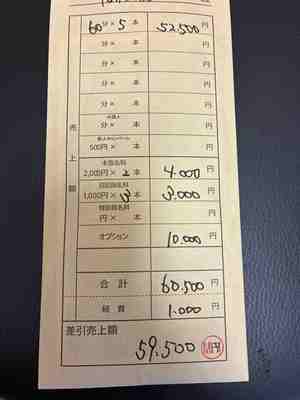 60 分 × 5 本 52.500 円
分 × 本 円
分 × 本 円
分 × 本 円
分 × 本 円
分 × 本 円
500円 × 本 円
売上額
本指名料
2,000円 × 2 本 4.000 円
1,000円 × 3 本 3.000 円
特別指名料
円 × 本 円
オプション 10.000 円
合計 60.500 円
経費 1.000 円
差引売上額
59.500 円